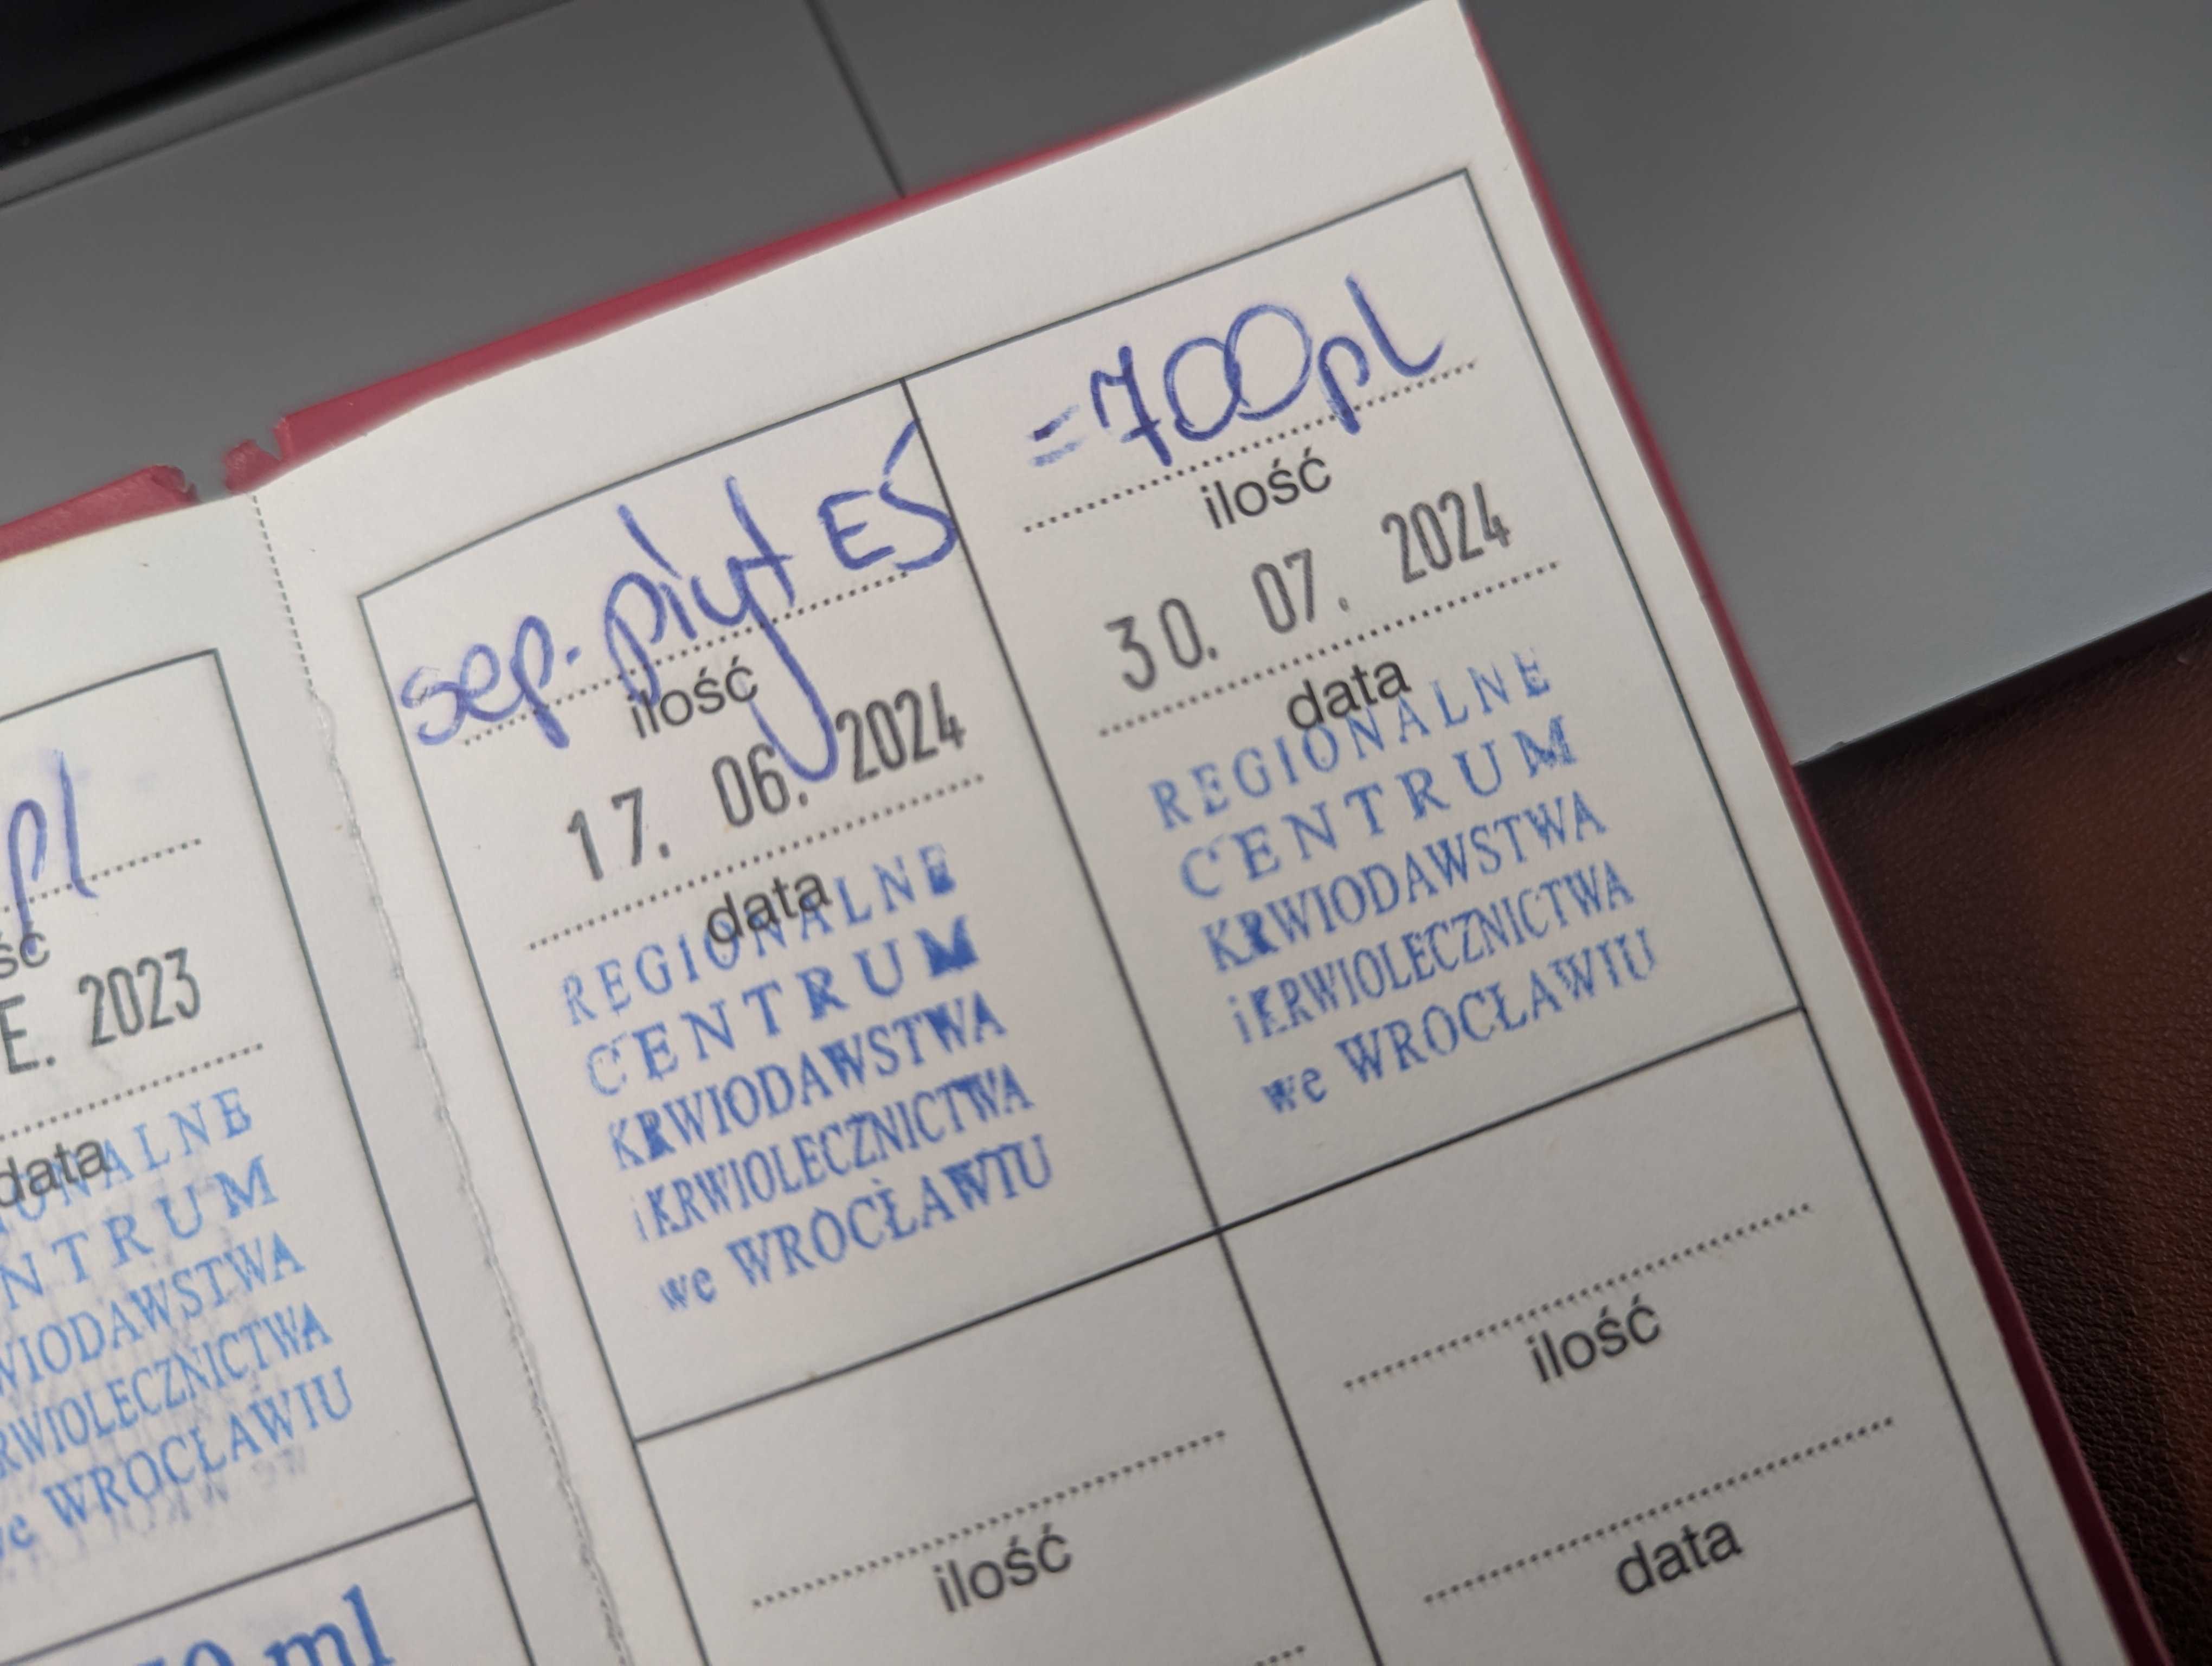 pl
ść
E. 2023
data
ONALNE
NTRUM
WIODAWSTWA
RWIOLECZNICTWA
we WROCŁAWIU
0 ml
sep. płyt EŚ
ilość
17. 06. 2024
data
REGIONALNE
CENTRUM
KRWIODAWSTWA
i KRWIOLECZNICTWA
we WROCŁAWIU
=700pl
ilość
30. 07. 2024
data
REGIONALNE
CENTRUM
KRWIODAWSTWA
i KRWIOLECZNICTWA
we WROCŁAWIU
ilość
ilość
data